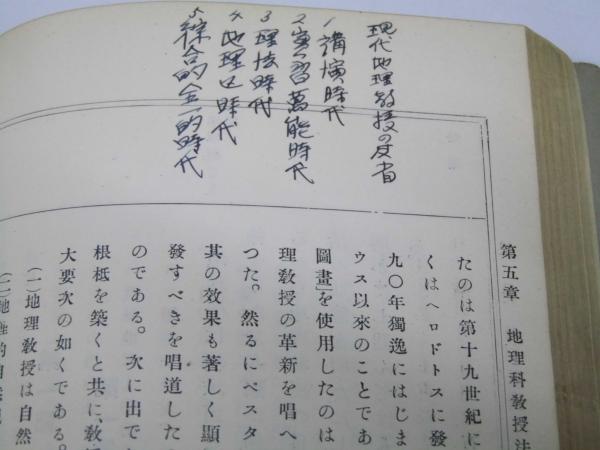 現代地理教授の反省
1 講演時代
2 實習萬能時代
3 理法時代
4 地理区時代
5 綜合的全一的時代
第五章 地理科教授法
たのは第十九世紀に
くはヘロドトスに發
九〇年獨逸にはじま
ウス以來のことであ
圖畫」を使用したのは
理敎授の革新を唱へ
つた。然るにペスタ
其の效果も著しく顯
發すべきを唱道した
のである。次に出で
根柢を築くと共に、敎
大要次の如くである。
(一)地理敎授は自然
(二)地理的自然